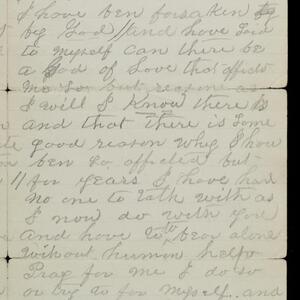 I have ben forsaken
by God // and have said
to myself can there be
a God of Love that affects
me so but reasone as
I will I know there is
and that there is some
good reason why I how
ben so affected but
// for years I have had
no one to talk with as
I now do with you
and have to bear alone
without human help
Pray for me I do so
or try to for myself and